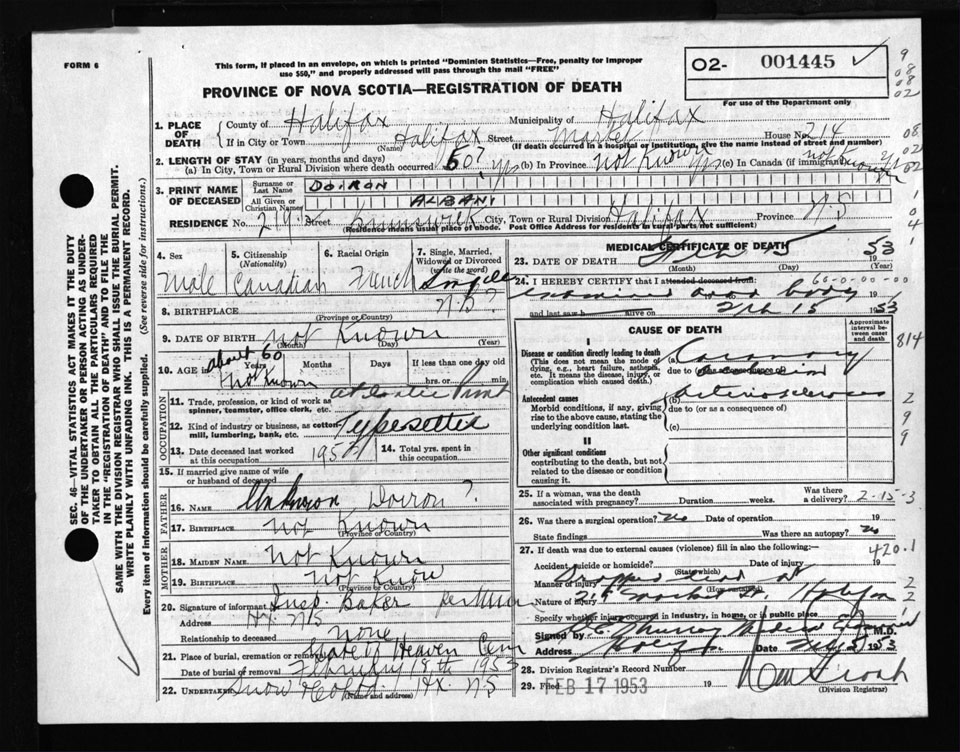 FORM 6
This form, if placed in an envelope, on which is printed "Dominion Statistics—Free, penalty for improper
use $50," and properly addressed will pass through the mail "FREE"
O2- 001445
PROVINCE OF NOVA SCOTIA—REGISTRATION OF DEATH
For use of the Department only
1. PLACE OF DEATH
County of Halifax Municipality of Halifax
If in City or Town Halifax Street Market House No. 214
(Name) (If death occurred in a hospital or institution, give the name instead of street and number)
2. LENGTH OF STAY (in years, months and days)
(a) In City, Town or Rural Division where death occurred 50? yrs (b) In Province Not Known yrs (c) In Canada (if immigrant) not
3. PRINT NAME OF DECEASED
Surname or Last Name DOIRON
All Given or Christian Names ALBANI
RESIDENCE No. 219 Street Brunswick City, Town or Rural Division Halifax Province N.S
(Residence means usual place of abode. Post Office Address for residents in rural parts not sufficient)
4. Sex Male
5. Citizenship (Nationality) Canadian
6. Racial Origin French
7. Single, Married, Widowed or Divorced (write the word) Single
8. BIRTHPLACE N.B.?
(Province or Country)
9. DATE OF BIRTH Not Known
(Month) (Day) (Year)
10. AGE in about 60 Years Months Days If less than one day old
Not Known hrs. or min.
OCCUPATION
11. Trade, profession, or kind of work as spinner, teamster, office clerk, etc.
12. Kind of industry or business, as cotton mill, lumbering, bank, etc. Typesetter
13. Date deceased last worked at this occupation 195
14. Total yrs. spent in this occupation
15. If married give name of wife or husband of deceased
FATHER
16. NAME Unknown Doiron ?
17. BIRTHPLACE Not Known
(Province or Country)
MOTHER
18. MAIDEN NAME Not Known
19. BIRTHPLACE Not Know
(Province or Country)
20. Signature of informant Insp. Baker
Address Hx NS
Relationship to deceased none
21. Place of burial, cremation or removal Gate of Heaven Cem
Date of burial or removal February 18th 1953
22. UNDERTAKER Snow & Co Ltd. Hx. N.S
(Name and address)
MEDICAL CERTIFICATE OF DEATH
23. DATE OF DEATH Feb 15 19 53
(Month) (Day) (Year)
24. I HEREBY CERTIFY that I attended deceased from
examined dead body 19
and last saw h alive on Feb 15 19 53
CAUSE OF DEATH
Approximate interval between onset and death
I
Disease or condition directly leading to death
(This does not mean the mode of dying, e.g., heart failure, asthenia, etc. It means the disease, injury, or complication which caused death.)
(a) Coronary
due to (or as a consequence of)
Antecedent causes
Morbid conditions, if any, giving rise to the above cause, stating the underlying condition last.
(b) Arteriosclerosis
due to (or as a consequence of)
(c)
II
Other significant conditions
contributing to the death, but not related to the disease or condition causing it.
814
2
9
9
25. If a woman, was the death associated with pregnancy? Duration weeks. Was there a delivery? 2-15-3
26. Was there a surgical operation? No Date of operation 19
State findings Was there an autopsy? No
27. If death was due to external causes (violence) fill in also the following:—
420.1
Accident, suicide or homicide? Date of injury 19
(State which)
Manner of injury Dropped dead at
(How sustained)
Nature of injury 214 Market St. Halifax
Specify whether injury occurred in industry, in home, or in public place
Signed by Murray Medical Examiner M.D.
Address Halifax Date Feb 19 53
28. Division Registrar's Record Number
29. Filed FEB 17 1953 19
(Division Registrar)
SEC. 46—VITAL STATISTICS ACT MAKES IT THE DUTY
OF THE UNDERTAKER OR PERSON ACTING AS UNDER-
TAKER TO OBTAIN ALL THE PARTICULARS REQUIRED
IN THE "REGISTRATION OF DEATH" AND TO FILE THE
SAME WITH THE DIVISION REGISTRAR WHO SHALL ISSUE THE BURIAL PERMIT.
WRITE PLAINLY WITH UNFADING INK. THIS IS A PERMANENT RECORD.
Every item of information should be carefully supplied. (See reverse side for instructions.)